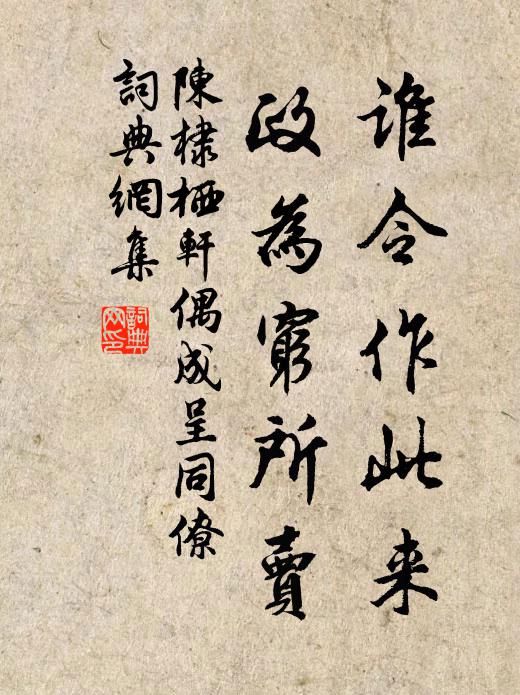 谁令作此来
政為窮所賣
陳棣栖軒偶成呈同僚
詞典網集
詞典網印